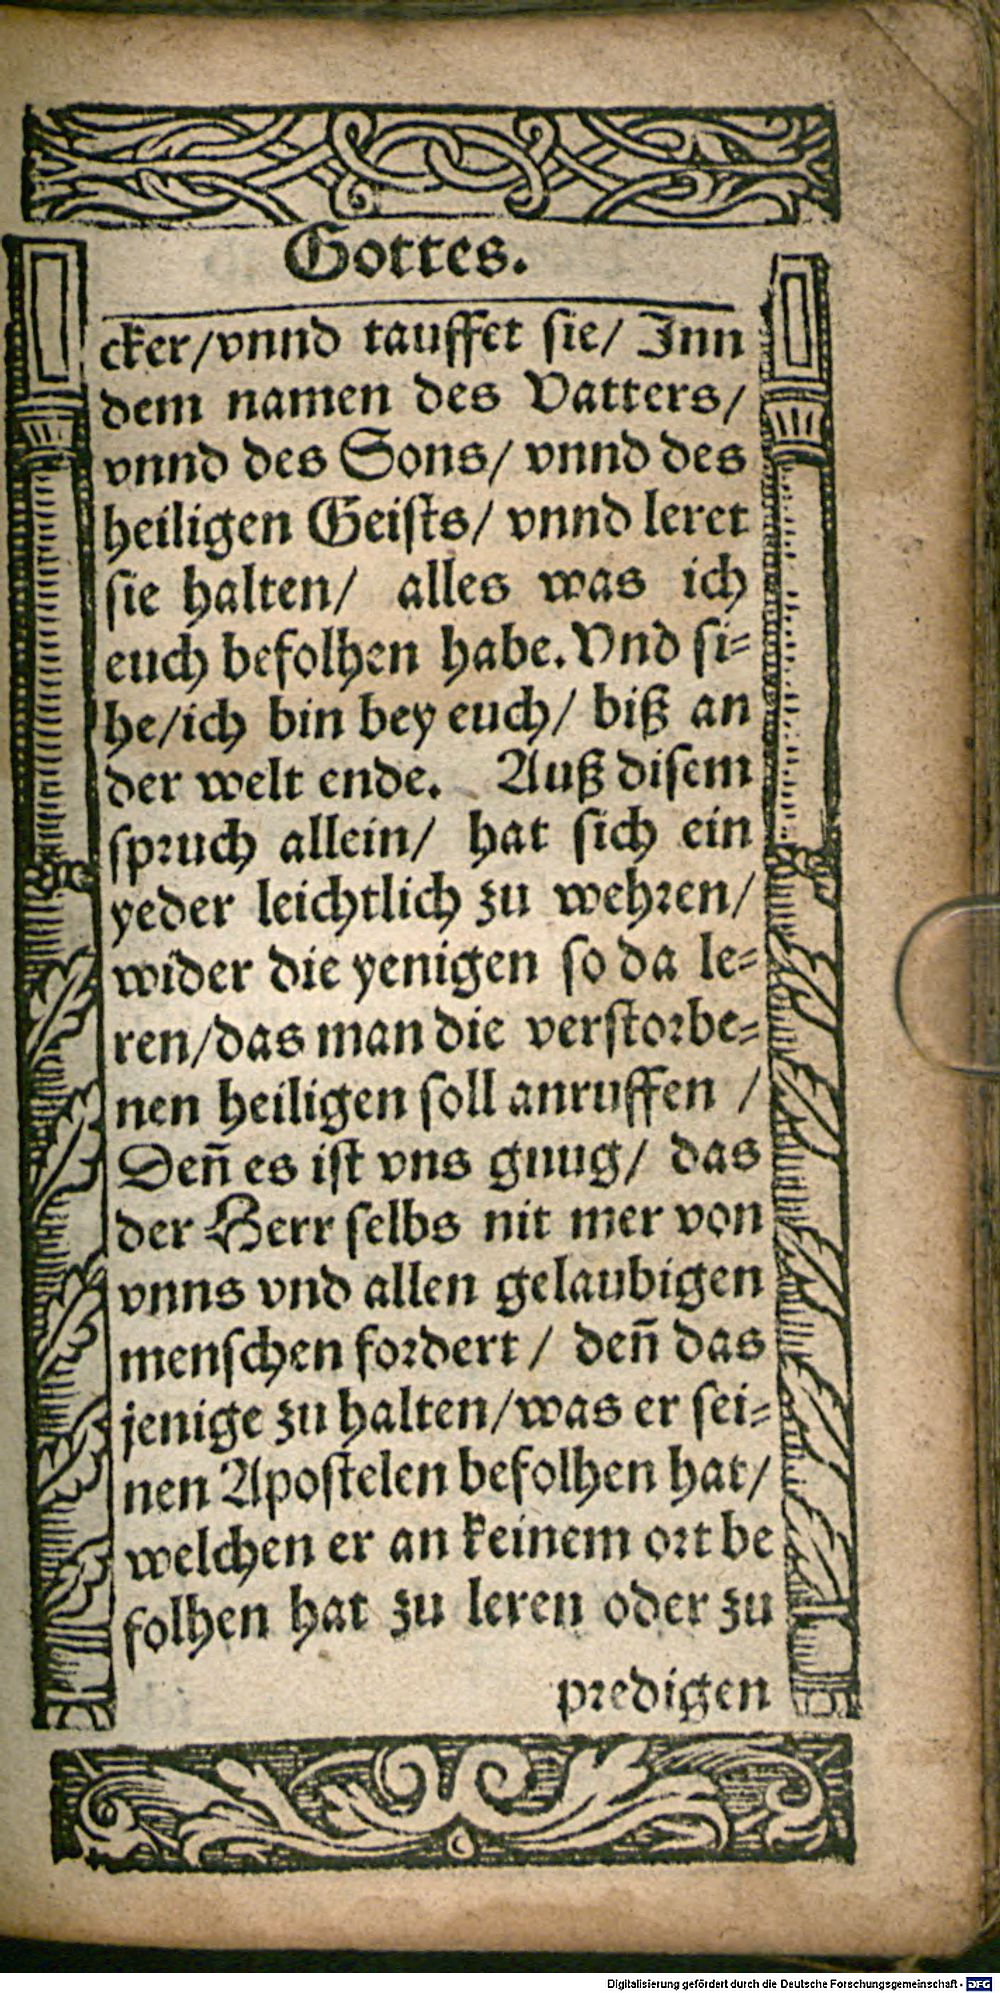 Gottes.
cker/vnnd tauffet sie/ Inn
dem namen des Vatters/
vnnd des Sons/ vnnd des
heiligen Geists/ vnnd leret
sie halten/ alles was ich
euch befolhen habe. Vnd si-
he/ich bin bey euch/ biß an
der welt ende. Auß disem
spruch allein/ hat sich ein
yeder leichtlich zu wehren/
wider die yenigen so da le-
ren/das man die verstorbe-
nen heiligen soll anruffen /
Deñ es ist vns gnug/ das
der Herr selbs nit mer von
vnns vnd allen gelaubigen
menschen fordert / deñ das
jenige zu halten/was er sei-
nen Apostelen befolhen hat/
welchen er an keinem ort be
folhen hat zu leren oder zu
predigen
Digitalisierung gefördert durch die Deutsche Forschungsgemeinschaft - DFG